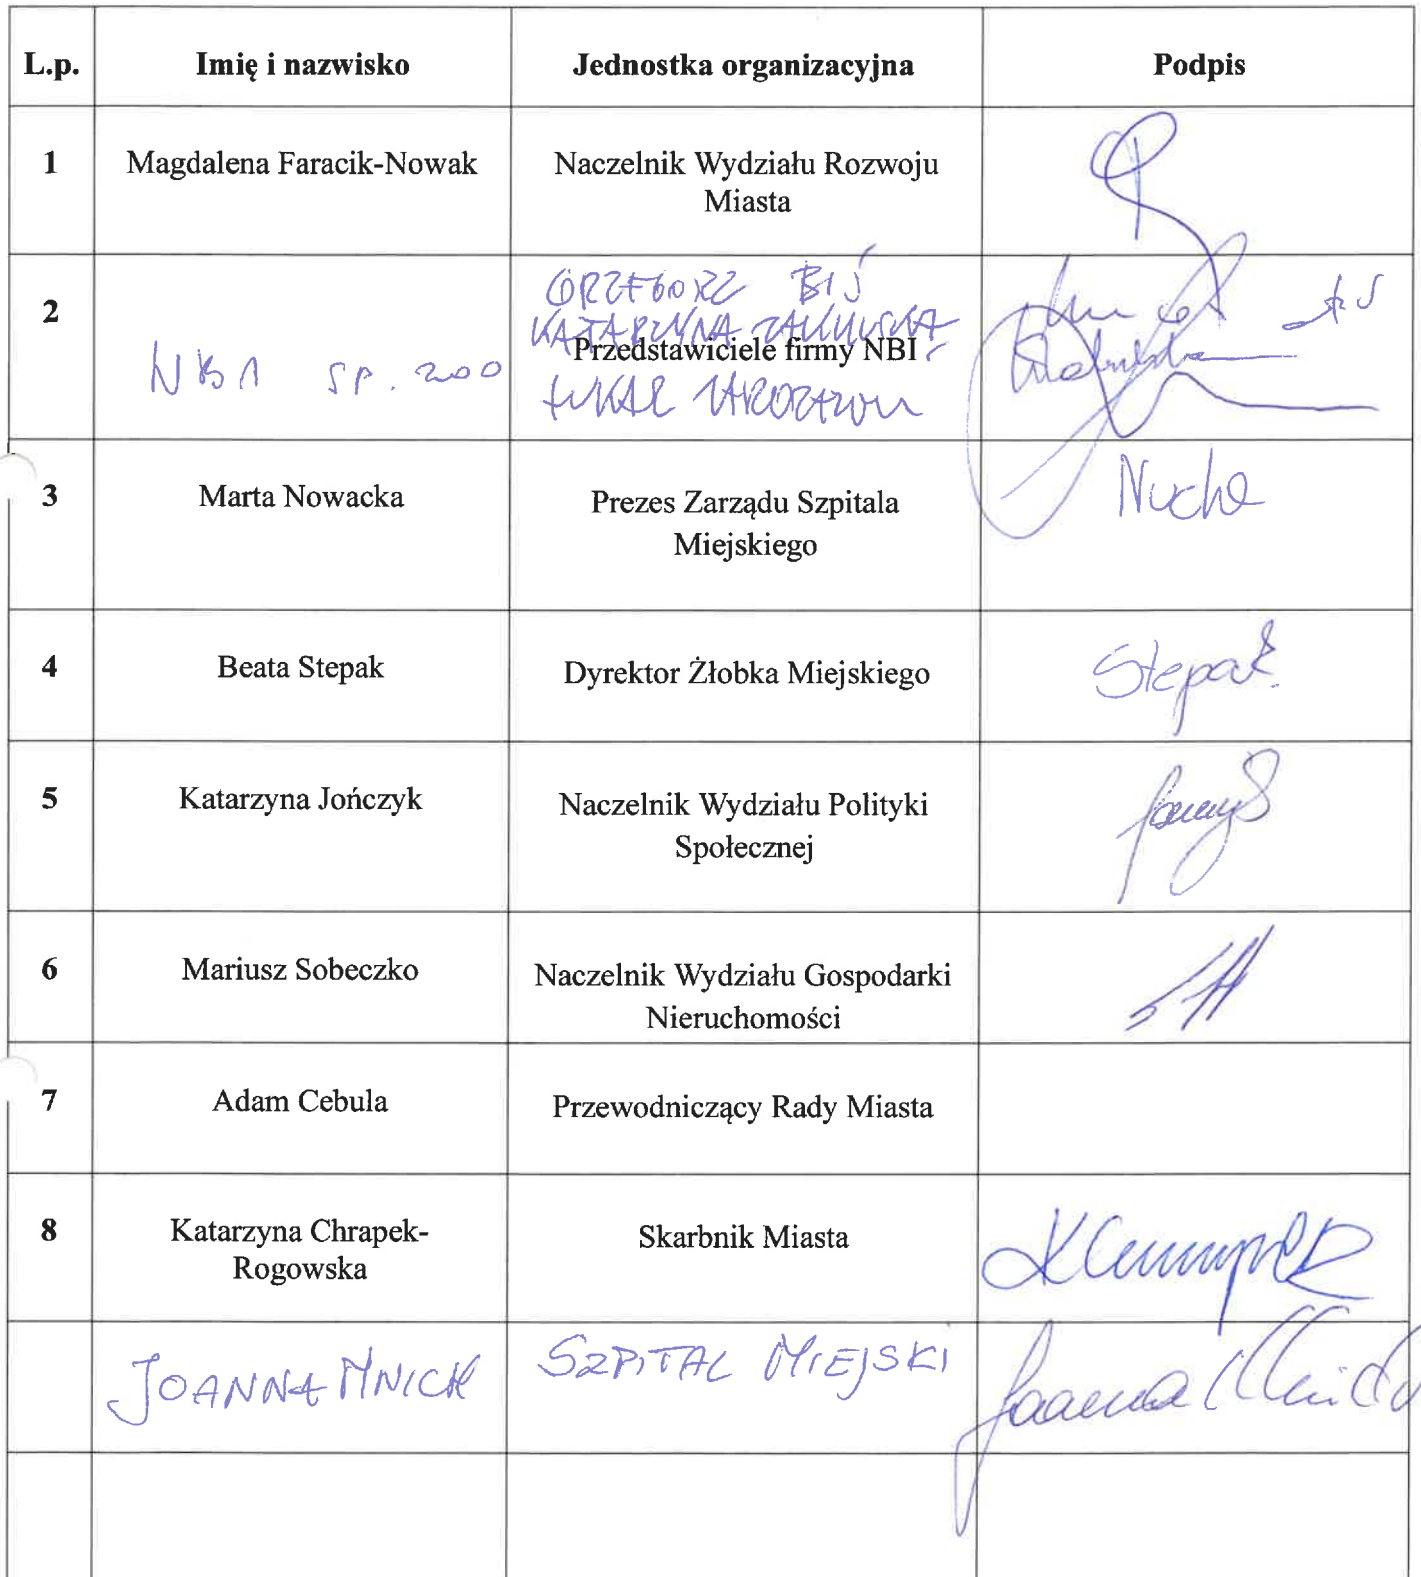 L.p. Imię i nazwisko Jednostka organizacyjna Podpis
1 Magdalena Faracik-Nowak Naczelnik Wydziału Rozwoju
Miasta
GRZEGORZ BIŚ
2
KATARZYNA
Przedstawiciele firmy NBI
NBI sp. zoo
ŁUKASZ
3 Marta Nowacka Prezes Zarządu Szpitala
Miejskiego
4 Beata Stepak Dyrektor Żłobka Miejskiego Stepak
5 Katarzyna Jończyk Naczelnik Wydziału Polityki
Społecznej
6 Mariusz Sobeczko Naczelnik Wydziału Gospodarki
Nieruchomości
7 Adam Cebula Przewodniczący Rady Miasta
8 Katarzyna Chrapek-
Rogowska
Skarbnik Miasta
JOANNA MNICH SZPITAL MIEJSKI Joanna Mnich